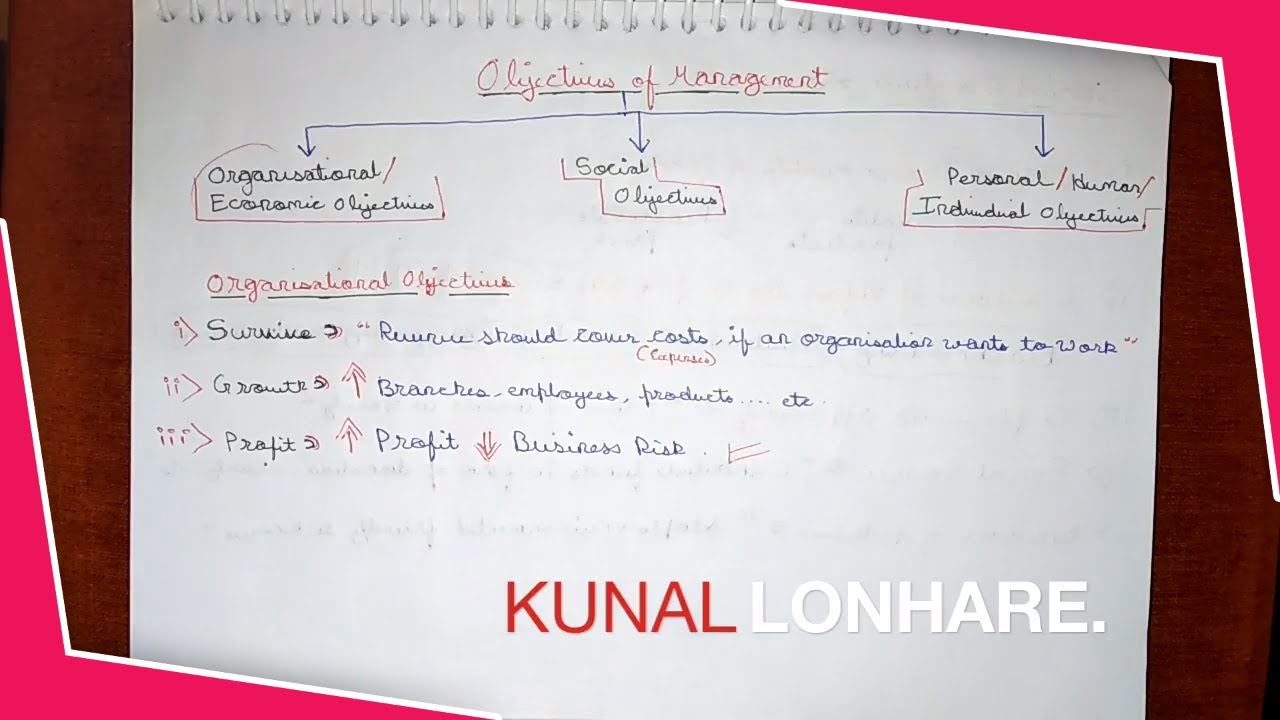 Objectives of Management
Organisational/
Economic Objectives
Social
Objectives
Personal/Human/
Individual Objectives
Organisational Objectives
i) Survive ⇒ "Revenue should cover costs, if an organisation wants to work"
(Expenses)
ii) Growth ⇒ ⇑ Branches, employees, products.... etc.
iii) Profit ⇒ ⇑ Profit ⇓ Business Risk.
KUNAL LONHARE.